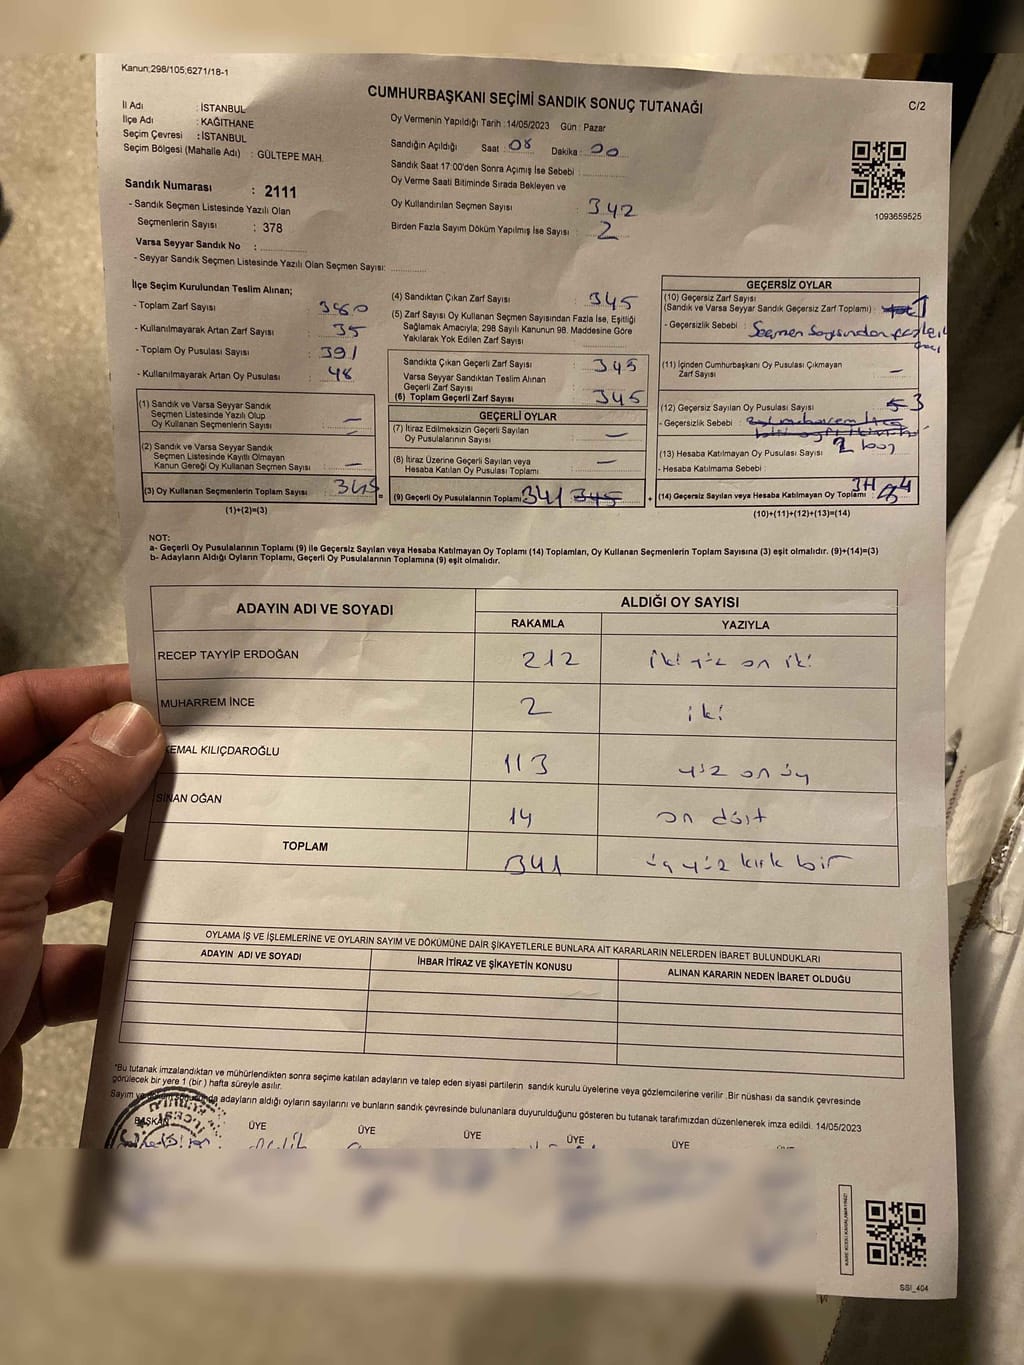 Kanun;298/105;6271/18-1
CUMHURBAŞKANI SEÇİMİ SANDIK SONUÇ TUTANAĞI
C/2
İl Adı : İSTANBUL
İlçe Adı : KAĞITHANE
Seçim Çevresi : İSTANBUL
Seçim Bölgesi (Mahalle Adı) : GÜLTEPE MAH.
Sandık Numarası : 2111
- Sandık Seçmen Listesinde Yazılı Olan
Seçmenlerin Sayısı : 378
Varsa Seyyar Sandık No :
- Seyyar Sandık Seçmen Listesinde Yazılı Olan Seçmen Sayısı:
Oy Vermenin Yapıldığı Tarih : 14/05/2023 Gün : Pazar
Sandığın Açıldığı Saat : 08 Dakika : 00
Sandık Saat 17:00'den Sonra Açımış İse Sebebi :
Oy Verme Saati Bitiminde Sırada Bekleyen ve
Oy Kullandırılan Seçmen Sayısı : 342
Birden Fazla Sayım Döküm Yapılmış İse Sayısı : 2
1093659525
İlçe Seçim Kurulundan Teslim Alınan;
- Toplam Zarf Sayısı : 380
- Kullanılmayarak Artan Zarf Sayısı : 35
- Toplam Oy Pusulası Sayısı : 391
- Kullanılmayarak Artan Oy Pusulası : 48
(1) Sandık ve Varsa Seyyar Sandık
Seçmen Listesinde Yazılı Olup
Oy Kullanan Seçmenlerin Sayısı : —
(2) Sandık ve Varsa Seyyar Sandık
Seçmen Listesinde Kayıtlı Olmayan
Kanun Gereği Oy Kullanan Seçmen Sayısı : —
(3) Oy Kullanan Seçmenlerin Toplam Sayısı : 345 =
(1)+(2)=(3)
(4) Sandıktan Çıkan Zarf Sayısı : 345
(5) Zarf Sayısı Oy Kullanan Seçmen Sayısından Fazla İse, Eşitliği
Sağlamak Amacıyla, 298 Sayılı Kanunun 98. Maddesine Göre
Yakılarak Yok Edilen Zarf Sayısı :
Sandıkta Çıkan Geçerli Zarf Sayısı : 345
Varsa Seyyar Sandıktan Teslim Alınan
Geçerli Zarf Sayısı :
(6) Toplam Geçerli Zarf Sayısı : 345
GEÇERLİ OYLAR
(7) İtiraz Edilmeksizin Geçerli Sayılan
Oy Pusulalarının Sayısı : —
(8) İtiraz Üzerine Geçerli Sayılan veya
Hesaba Katılan Oy Pusulası Toplamı : —
(9) Geçerli Oy Pusulalarının Toplamı : 341 345 +
GEÇERSİZ OYLAR
(10) Geçersiz Zarf Sayısı
(Sandık ve Varsa Seyyar Sandık Geçersiz Zarf Toplamı) : 1
- Geçersizlik Sebebi : Seçmen Sayısından fazla
(11) İçinden Cumhurbaşkanı Oy Pusulası Çıkmayan
Zarf Sayısı : —
(12) Geçersiz Sayılan Oy Pusulası Sayısı : 5 3
- Geçersizlik Sebebi :
(13) Hesaba Katılmayan Oy Pusulası Sayısı : 2 boş
- Hesaba Katılmama Sebebi :
(14) Geçersiz Sayılan veya Hesaba Katılmayan Oy Toplamı : 4
(10)+(11)+(12)+(13)=(14)
NOT:
a- Geçerli Oy Pusulalarının Toplamı (9) ile Geçersiz Sayılan veya Hesaba Katılmayan Oy Toplamı (14) Toplamları, Oy Kullanan Seçmenlerin Toplam Sayısına (3) eşit olmalıdır. (9)+(14)=(3)
b- Adayların Aldığı Oyların Toplamı, Geçerli Oy Pusulalarının Toplamına (9) eşit olmalıdır.
ADAYIN ADI VE SOYADI ALDIĞI OY SAYISI
RAKAMLA YAZIYLA
RECEP TAYYİP ERDOĞAN 212 iki yüz on iki
MUHARREM İNCE 2 iki
KEMAL KILIÇDAROĞLU 113 yüz on üç
SİNAN OĞAN 14 on dört
TOPLAM 341 üç yüz kırk bir
OYLAMA İŞ VE İŞLEMLERİNE VE OYLARIN SAYIM VE DÖKÜMÜNE DAİR ŞİKAYETLERLE BUNLARA AİT KARARLARIN NELERDEN İBARET BULUNDUKLARI
ADAYIN ADI VE SOYADI İHBAR İTİRAZ VE ŞİKAYETİN KONUSU ALINAN KARARIN NEDEN İBARET OLDUĞU
"Bu tutanak imzalandıktan ve mühürlendikten sonra seçime katılan adayların ve talep eden siyasi partilerin sandık kurulu üyelerine veya gözlemcilerine verilir .Bir nüshası da sandık çevresinde
görülecek bir yere 1 (bir ) hafta süreyle asılır.
Sayım ve adayların aldığı oyların sayılarını ve bunların sandık çevresinde bulunanlara duyurulduğunu gösteren bu tutanak tarafımızdan düzenlenerek imza edildi. 14/05/2023
BAŞKAN ÜYE ÜYE ÜYE ÜYE ÜYE
SSI_404